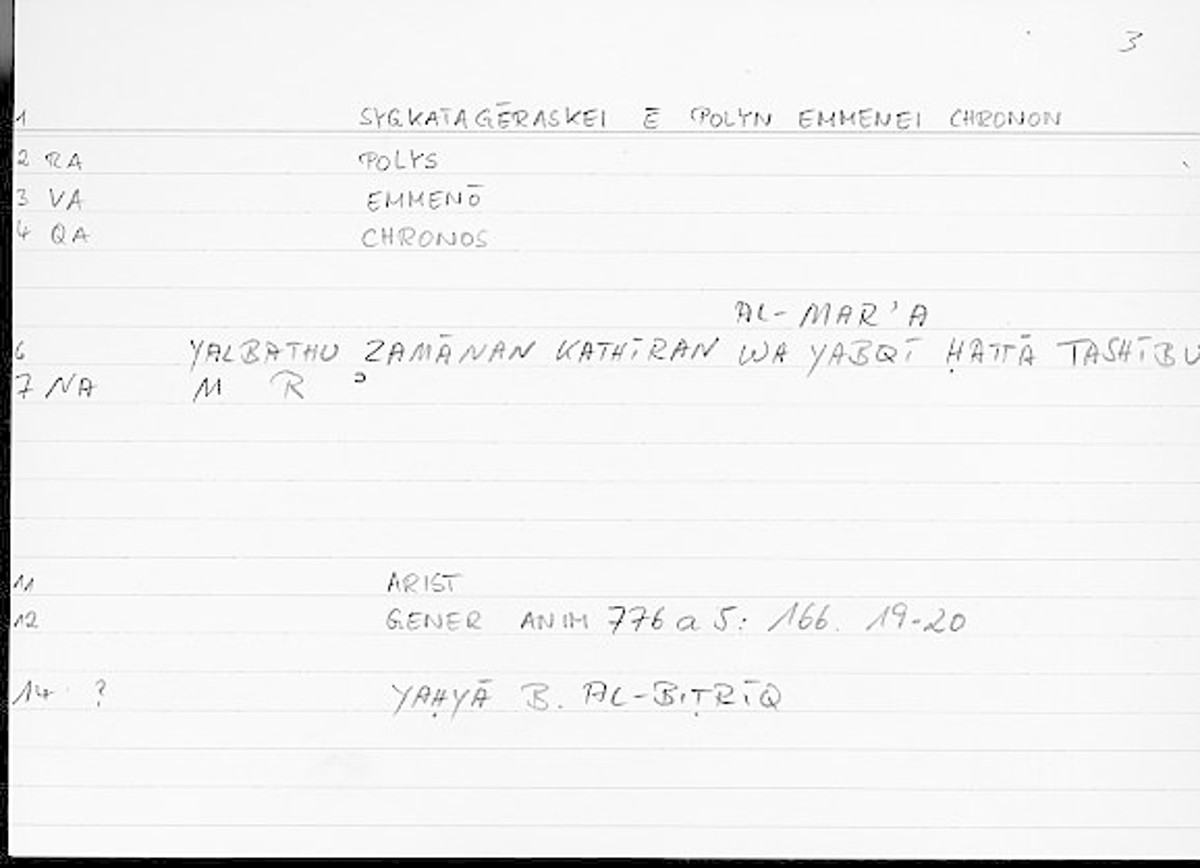 3
1 SYGKATAGĒRASKEI Ē POLYN EMMENEI CHRONON
2 RA POLYS
3 VA EMMENŌ
4 QA CHRONOS
AL-MAR'A
6 YALBATHU ZAMĀNAN KATHĪRAN WA YABQĪ ḤATTĀ TASHĪBU
7 NA M R ʾ
11 ARIST
12 GENER ANIM 776 a 5: 166. 19-20
14 ? YAḤYĀ B. AL-BIṬRĪQ